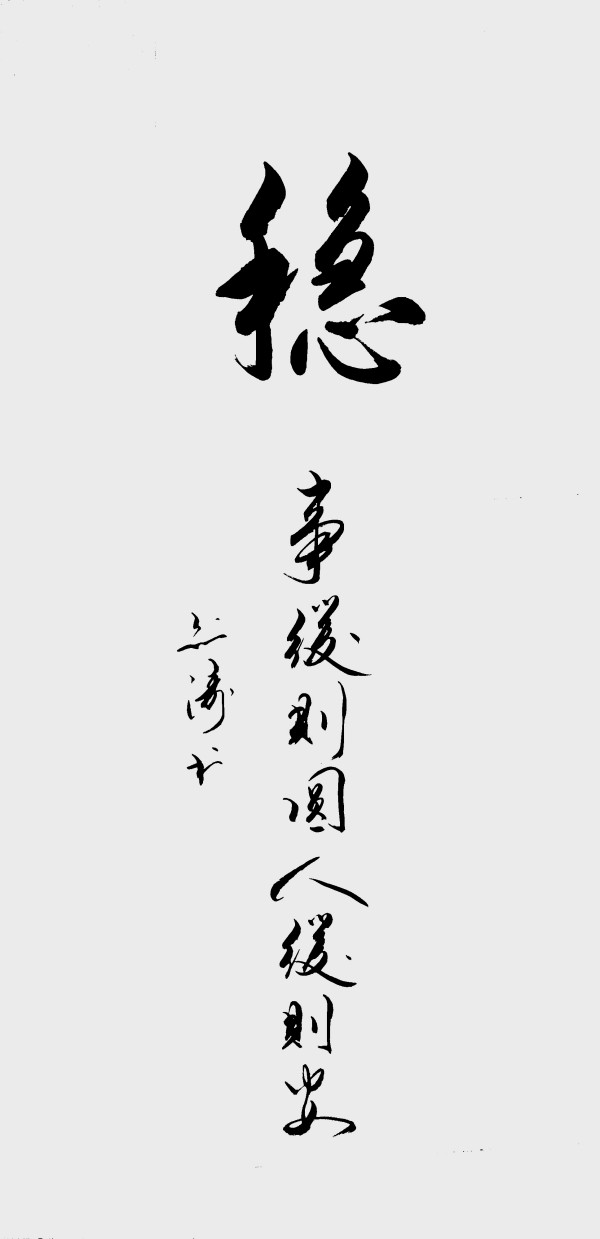 稳
事缓则圆人缓则安
涛书